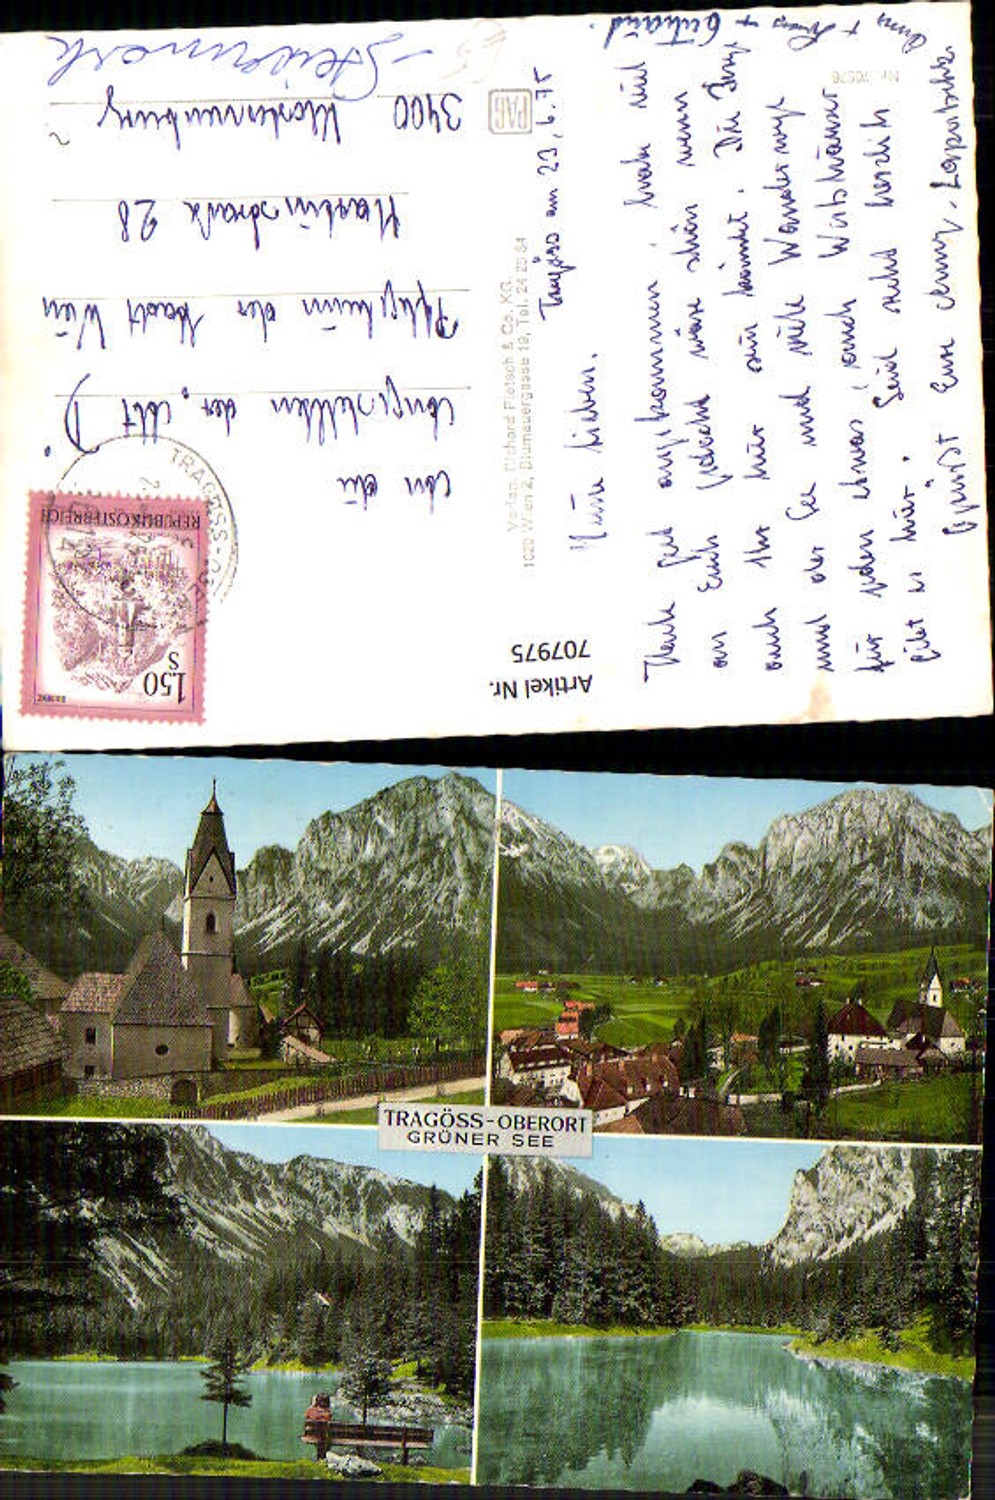 Tragöss am 23, 6.75
Meine Lieben.
Heute gut angekommen, habe viel
an Euch gedacht wäre schön wenn
auch Ihr hier sein könnt. Die Berge
und der See und viele Wanderwege
für jeden etwas, auch Wirtshäuser
gibt es hier. Seid recht herzlich
gegrüßt Eure
Artikel Nr.
707975
Verlag: Richard Pietsch & Co. KG.
1020 Wien 2, Blumauergasse 19, Tel. 24 25 64
PAG
Nr. 70576
An die
Angestellten der "Abt D"
Pflegeheim der Stadt Wien
Martinstraße 28
3400 Klosterneuburg
Steiermark
REPUBLIK ÖSTERREICH
1.50
S
TRAGÖSS-OB
TRAGÖSS-OBERORT
GRÜNER SEE